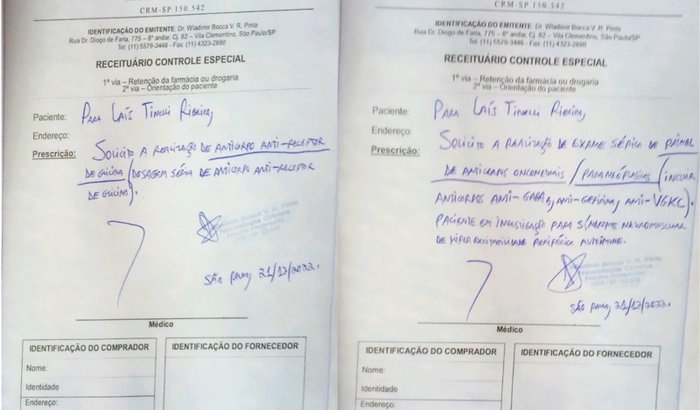 CRM-SP 150.542
IDENTIFICAÇÃO DO EMITENTE: Dr. Wladimir Bocca V. R. Pinto
Rua Dr. Diogo de Faria, 775 – 8º andar, Cj. 82 – Vila Clementino, São Paulo/SP
Tel: (11) 5579-3446 - Fax: (11) 4323-2680
RECEITUÁRIO CONTROLE ESPECIAL
1ª via – Retenção da farmácia ou drogaria
2ª via – Orientação do paciente
Paciente: Para Laís Tinelli Ribeiro,
Endereço:
Prescrição: Solicito a realização de anticorpo anti-receptor
de glicina (dosagem sérica de anticorpo anti-receptor
de glicina).
São Paulo, 21/12/2022.
Médico
IDENTIFICAÇÃO DO COMPRADOR
Nome:
Identidade
Endereço:
IDENTIFICAÇÃO DO FORNECEDOR
CRM-SP 150.542
IDENTIFICAÇÃO DO EMITENTE: Dr. Wladimir Bocca V. R. Pinto
Rua Dr. Diogo de Faria, 775 – 8º andar, Cj. 82 – Vila Clementino, São Paulo/SP
Tel: (11) 5579-3446 - Fax: (11) 4323-2680
RECEITUÁRIO CONTROLE ESPECIAL
1ª via – Retenção da farmácia ou drogaria
2ª via – Orientação do paciente
Paciente: Para Laís Tinelli Ribeiro,
Endereço:
Prescrição: Solicito a realização de exame sérico de painel
de anticorpos onconeurais / paraneoplásicos (incluir
anticorpos anti-GABA, anti-gefirina, anti-VGKC).
Paciente em investigação para síndrome neuromuscular
de hiperexcitabilidade periférica autoimune.
São Paulo, 21/12/2022.
Médico
IDENTIFICAÇÃO DO COMPRADOR
Nome:
Identidade
Endereço:
IDENTIFICAÇÃO DO FORNECEDOR